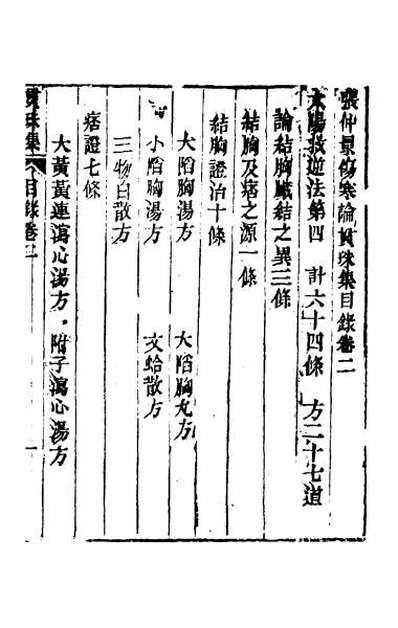 張仲景傷寒論貫珠集目錄卷二
太陽救逆法第四　計六十四條　方二十七道
論結胸臟結之異三條
結胸及痞之源一條
結胸證治十條
大陷胸湯方　大陷胸丸方
小陷胸湯方　文蛤散方
三物白散方
痞證七條
大黃黃連瀉心湯方　附子瀉心湯方
貫珠集　目錄卷二　一